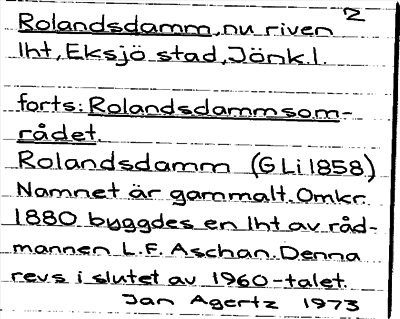 2
Rolandsdamm, nu riven
lht, Eksjö stad, Jönk.l.
forts: Rolandsdammsom-
rådet.
Rolandsdamm (G Li 1858)
Namnet är gammalt. Omkr.
1880 byggdes en lht av råd-
mannen L.F. Aschan. Denna
revs i slutet av 1960-talet.
Jan Agertz 1973